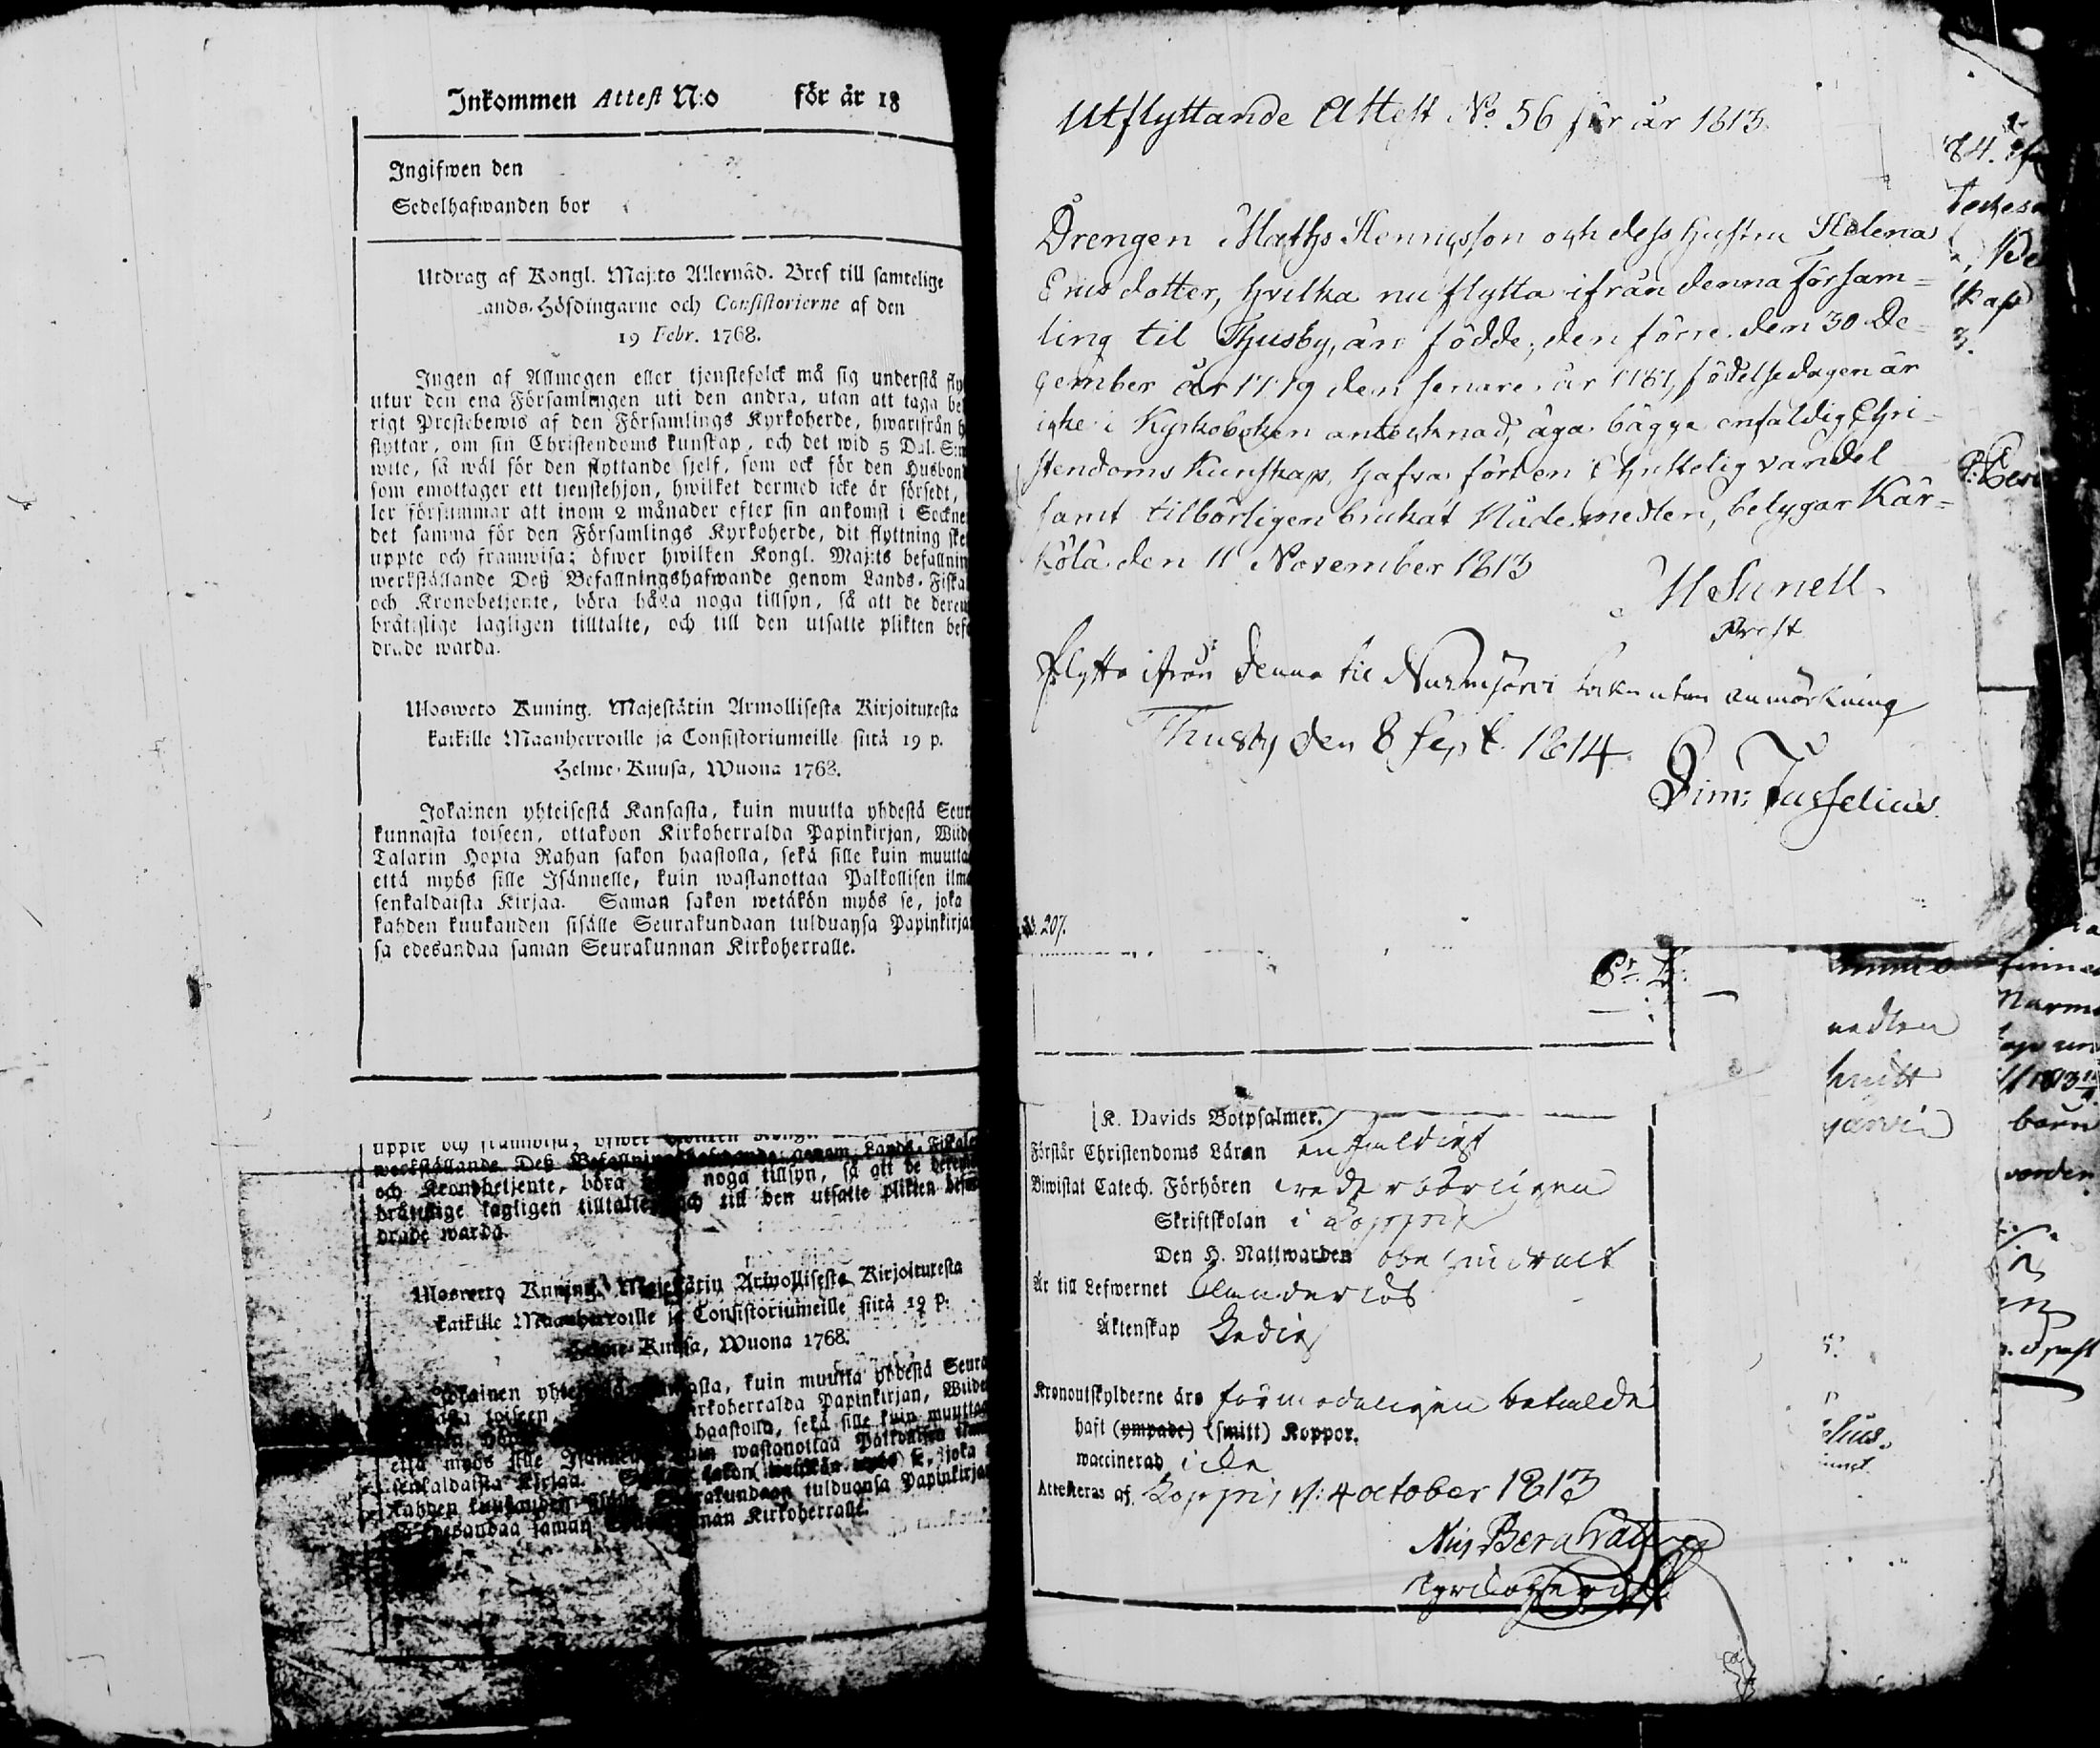 Inkommen Attest N:o för år 18
Ingifwen den
Sedelhafwanden bor
Utdrag af Kongl. Maj:ts Allernåd. Bref till samtelige
ands-Höfdingarne och Consistorierne af den
19 Febr. 1768.
Ingen af Allmogen eller tjenstefolck må sig understå fly
utur den ena Församlingen uti den andra, utan att taga be
rigt Prestebewis af den Församlings Kyrkoherde, hwarifrån h
flyttar, om sin Christendoms kunskap, och det wid 5 Dal. S:m
wite, så wäl för den flyttande sjelf, som ock för den Husbon
som emottager ett tjenstehjon, hwilket dermed icke är försedt,
ler försummar att inom 2 månader efter sin ankomst i Sockne
det samma för den Församlings Kyrkoherde, dit flyttning ske
uppte och framwisa; öfwer hwilken Kongl. Maj:ts befallnin
werkställande Deß Befallningshafwande genom Lands-Fiska
och Kronobetjente, böra håga noga tillsyn, så att de deremo
bråtislige lagligen tilltalte, och till den utsatte plikten bef
drade warda.
Uloswero Kuning. Majestätin Armollisesta Kirjoituxesta
kaikille Maanherroille ja Consistoriumeille siitä 19 p.
Helme-Kuusa, Wuona 1768.
Jokainen yhteisestä Kansasta, kuin muutta yhdestä Seur
kunnasta toiseen, ottakoon Kirkoherralda Papinkirjan, Wiide
Talarin Hopia Rahan sakon haastolla, sekä sille kuin muutta
että myös sille Isännelle, kuin wastanottaa Palkollisen ilma
senkaldaista Kirjaa. Saman sakon wetäkön myös se, joka
kahden kuukauden sisälle Seurakundaan tulduansa Papinkirja
sa edesandaa saman Seurakunnan Kirkoherralle.
werkställande Deß Befallningshafwande genom Lands-Fiskale
och Kronobetjente, böra noga tillsyn, så att de deremo
bråtislige lagligen tilltalte, och till den utsatte plikten befo
drade warda.
Uloswero Kuning. Majestätin Armollisesta Kirjoituxesta
kaikille Maanherroille ja Consistoriumeille siitä 19 p.
Helme-Kuusa, Wuona 1768.
Jokainen asta, kuin muutta yhdestä Seura
toiseen, Kirkoherralda Papinkirjan, Wiide
haastolla, sekä sille kuin muutta
että myös sille wastanottaa Palkollisen
senkaldaista Kirjaa. sakon se, joka
kahden tulduansa Papinkirja
edesandaa saman Kirkoherralle.
Utflyttande Attest No. 56 för år 1813.
Drengen Maths Henricsson och dess Hustru Helena
Ericsdotter, hvilka nu flytta ifrån denna Försam=
ling til Thusby, äro födde, den förre den 30 De=
cember år 1779 den senare år 1787, födelsedagen är
icke i Kyrkoboken antecknad, äga bägge enfaldig Chri=
stendoms Kunskap, hafva fört en Christelig vandel
samt tilbörligen brukat Nådemedlen, betygar Kär=
kölä den 11 November 1813
H Sunell
Prost
Flytta ifrån denna til Nurmijärvi Sokn utan anmärkning
Thusby den 8 Sept. 1814.
Sim: Tusselius.
207.
K. Davids Botpsalmer.
Förstår Christendoms Läran enfaldigt
Biwistat Catech. Förhören wederbörligen
Skriftskolan i Loppis
Den H. Nattwarden obehindradt
Är till Lefwernet klanderlös
Äktenskap Ledig
Kronoutskylderne äro förmodeligen betalde
haft (ympade) (smitt) Koppor.
waccinerad icke
Attesteras af, Loppis d: 4 october 1813